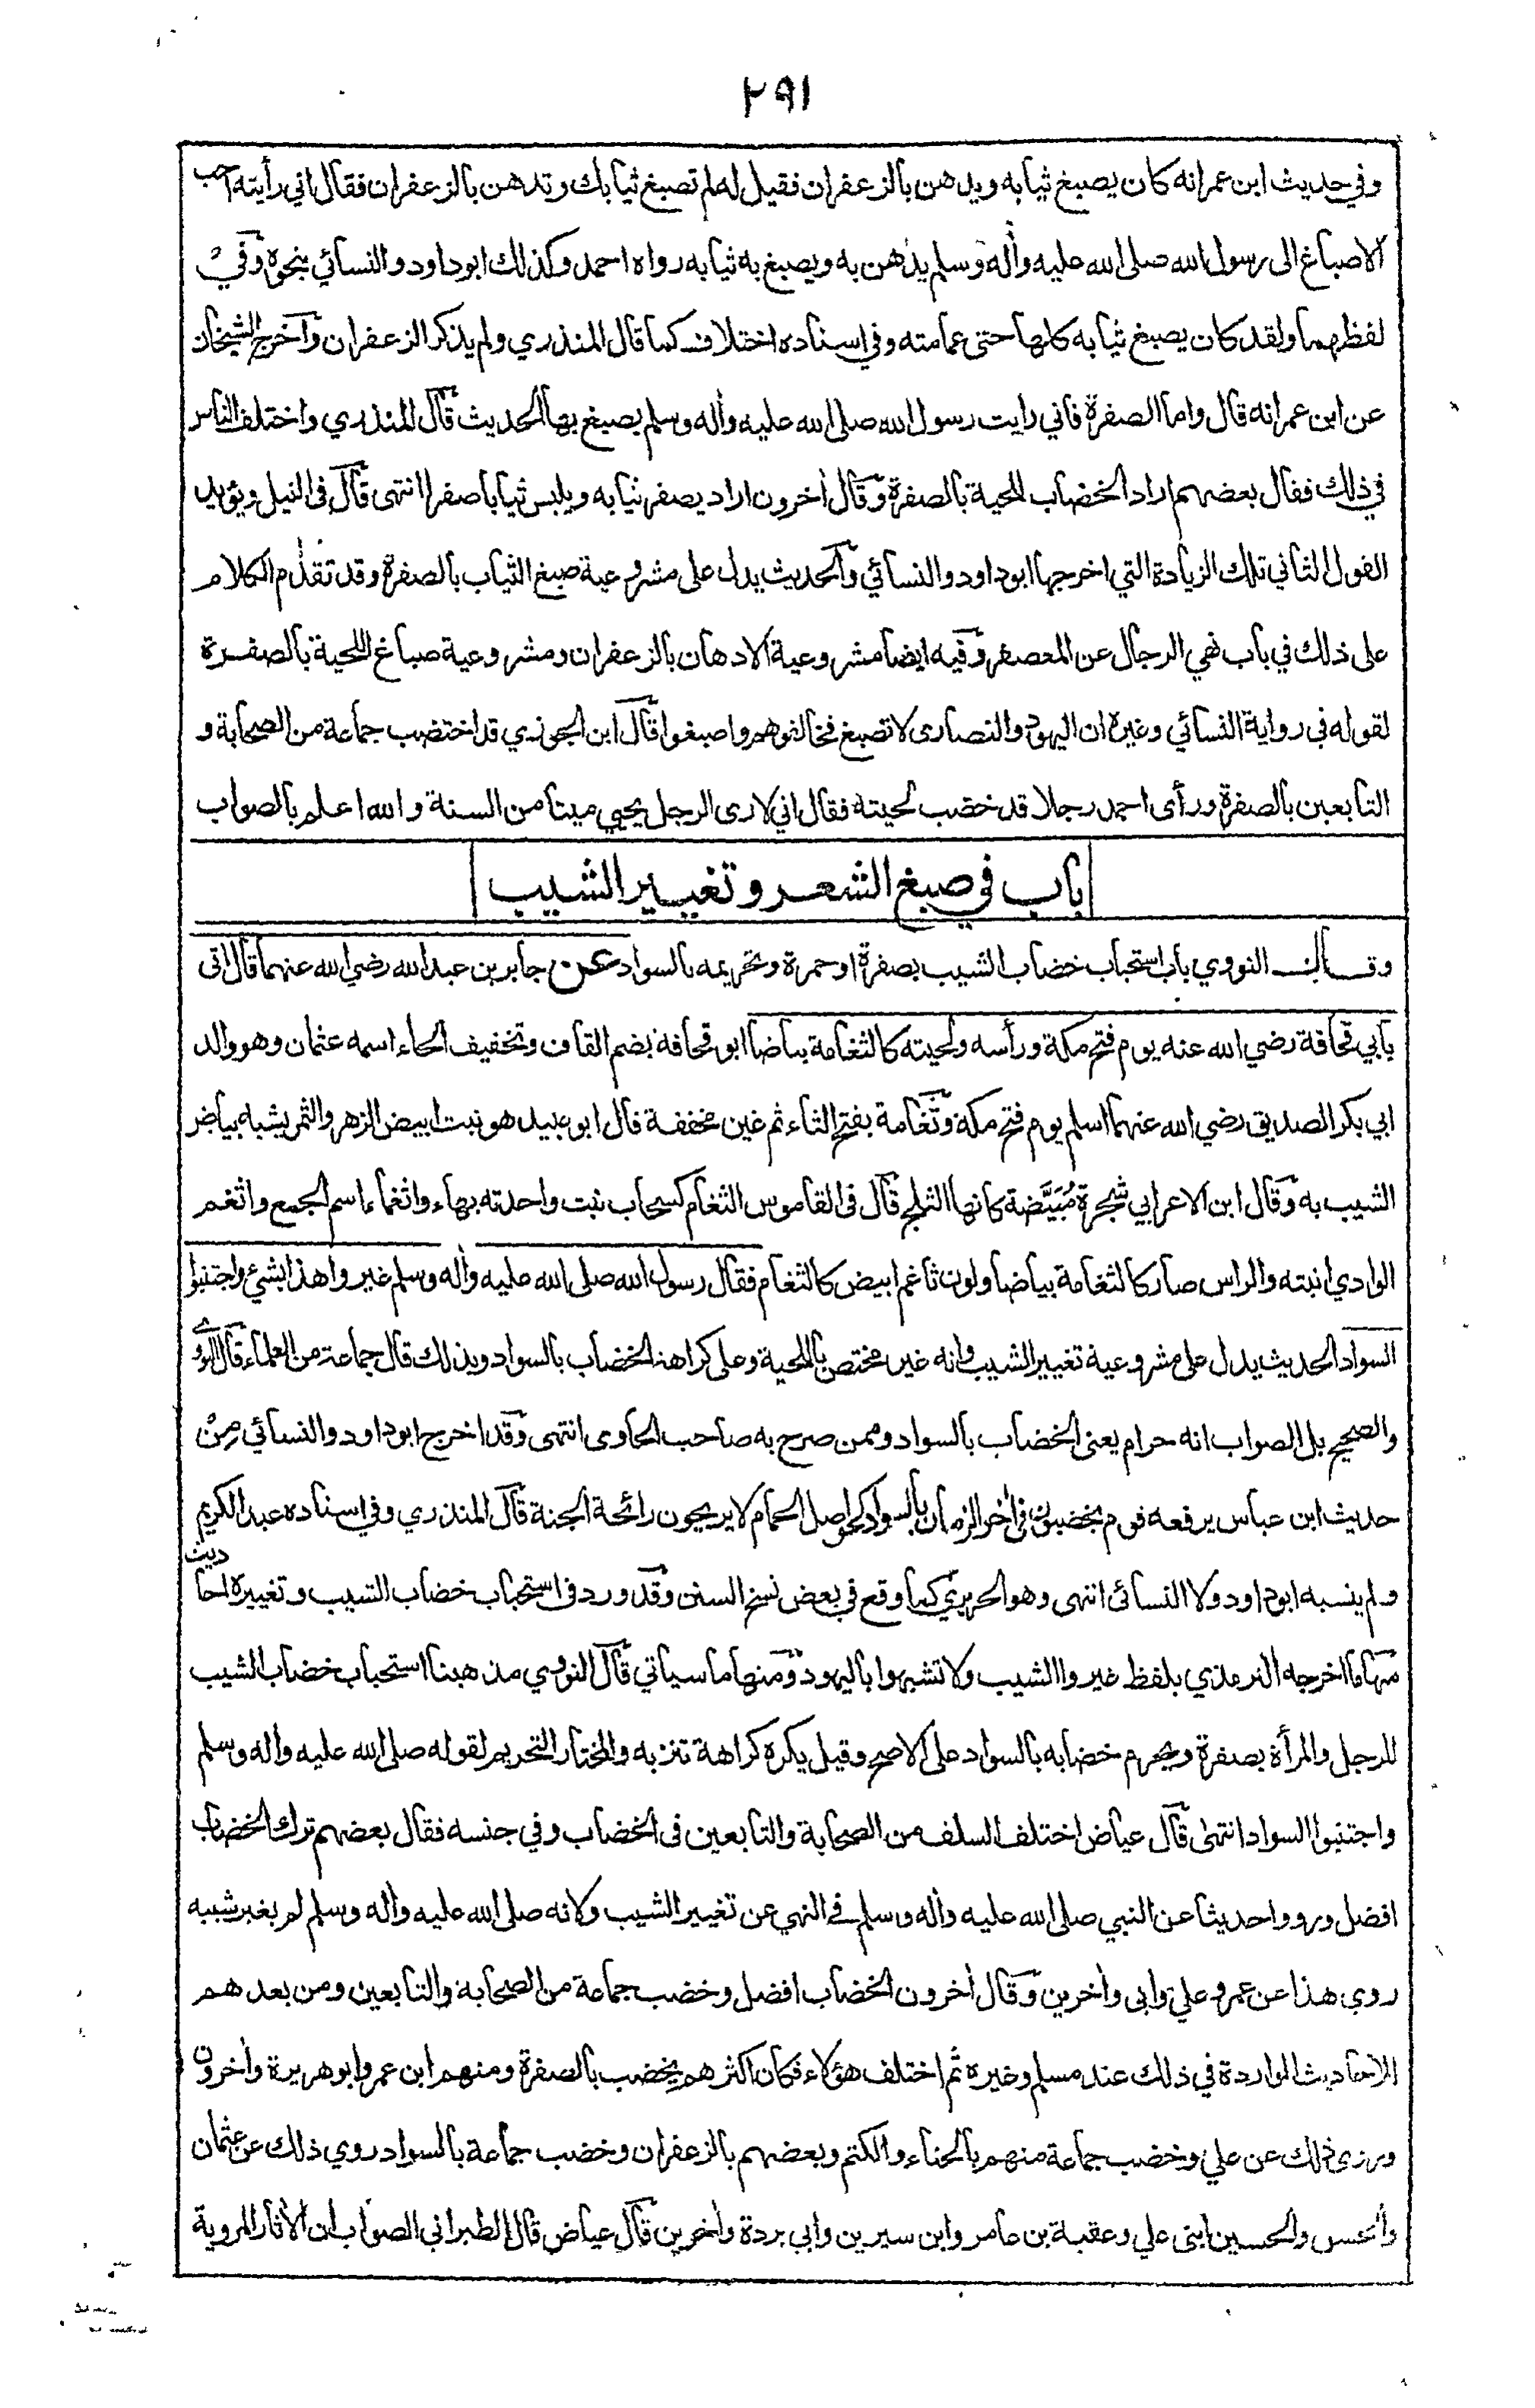 ٢٩١
وفي حديث ابن عمر انه كان يصبغ ثيابه ويدهن بالزعفران فقيل له لم تصبغ ثيابك وتدهن بالزعفران فقال اني رأيته احب
الاصباغ الى رسول الله صلى الله عليه وأله وسلم يدهن به ويصبغ به ثيابه رواه احمد وكذلك ابو داود والنسائي بنحوه وفي
لفظهما ولقد كان يصبغ ثيابه كلها حتى عمامته وفي اسناده اختلاف كما قال المنذري ولم يذكر الزعفران وأخرج الشيخان
عن ابن عمر انه قال واما الصفرة فاني رايت رسول الله صلى الله عليه وأله وسلم يصبغ بها الحديث قال المنذري واختلف الناس
في ذلك فقال بعضهم اراد الخضاب للحية بالصفرة وقال أخرون اراد يصفر ثيابه ويلبس ثيابا صفرا انتهى قال فى النيل ويؤيد
القول الثاني تلك الزيادة التي اخرجها ابو داود والنسائي والحديث يدل على مشروعية صبغ الثياب بالصفرة وقد تقدم الكلام
على ذلك في باب نهي الرجال عن المعصفر وفيه ايضا مشروعية الادهان بالزعفران ومشروعية صباغ اللحية بالصفرة
لقوله فى رواية النسائي وغيره ان اليهود والنصارى لا تصبغ فخالفوهم واصبغوا قال ابن الجوزي قد اختضب جماعة من الصحابة و
التابعين بالصفرة ورأى احمد رجلا قد خضب لحيته فقال اني لارى الرجل يحيي ميتا من السنة والله اعلم بالصواب
باب في صبغ الشعر وتغيير الشيب
وقال النووي باب استحباب خضاب الشيب بصفرة او حمرة وتحريمه بالسواد عن جابر بن عبد الله رضي الله عنهما قال اتى
بأبي قحافة رضي الله عنه يوم فتح مكة ورأسه ولحيته كالثغامة بياضا ابو قحافة بضم القاف وتخفيف الحاء اسمه عثمان وهو والد
ابي بكر الصديق رضي الله عنهما اسلم يوم فتح مكة وثغامة بفتح الثاء ثم غين مخففة قال ابو عبيد هو نبت ابيض الزهر والثمر يشبه بياض
الشيب به وقال ابن الاعرابي شجرة مُبَيَّضة كانها الثلج قال فى القاموس الثغام كسحاب نبت واحدته بهاء واثغماء اسم الجمع واثغم
الوادي انبته والراس صار كالثغامة بياضا ولون ثاغم ابيض كالثغام فقال رسول الله صلى الله عليه وأله وسلم غيروا هذا بشئ واجتنبوا
السواد الحديث يدل على مشروعية تغيير الشيب وانه غير مختص باللحية وعلى كراهة الخضاب بالسواد وبذلك قال جماعة من العلماء قال النووي
والصحيح بل الصواب انه حرام يعنى الخضاب بالسواد وممن صرح به صاحب الحاوى انتهى وقد اخرج ابو داود والنسائي مِنْ
حديث ابن عباس يرفعه قوم يخضبون فى أخر الزمان بالسواد كحواصل الحمام لا يريحون رائحة الجنة قال المنذري وفي اسناده عبد الكريم
ولم ينسبه ابو داود ولا النسائى انتهى وهو الجزري كما وقع في بعض نسخ السنن وقد ورد فى استحباب خضاب الشيب وتغييره احاديث
منها ما اخرجه الترمذي بلفظ غيروا الشيب ولا تشبهوا باليهود ومنها ما سياتي قال النووي مذهبنا استحباب خضاب الشيب
للرجل والمرأة بصفرة ويحرم خضابه بالسواد على الاصح وقيل يكره كراهة تنزيه والمختار التحريم لقوله صلى الله عليه وأله وسلم
واجتنبوا السواد انتهى قال عياض اختلف السلف من الصحابة والتابعين فى الخضاب وفي جنسه فقال بعضهم ترك الخضاب
افضل ورووا حديثا عن النبي صلى الله عليه وأله وسلم في النهي عن تغيير الشيب ولانه صلى الله عليه وأله وسلم لم يغير شيبه
روي هذا عن عمر وعلي وابى وأخرين وقال أخرون الخضاب افضل وخضب جماعة من الصحابة والتابعين ومن بعدهم
للاحاديث الواردة في ذلك عند مسلم وغيره ثم اختلف هؤلاء فكان اكثرهم يخضب بالصفرة ومنهم ابن عمر وابو هريرة وأخرون
وروى ذلك عن علي وخضب جماعة منهم بالحناء والكتم وبعضهم بالزعفران وخضب جماعة بالسواد روي ذلك عن عثمان
والحسن والحسين ابنى علي وعقبة بن عامر وابن سيرين وابي بردة وأخرين قال عياض قال الطبراني الصواب ان الأثار المروية